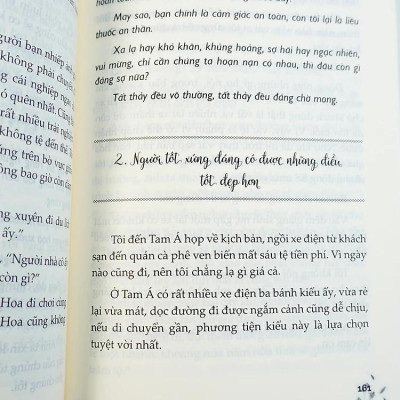 May sao, bạn chính là cảm giác an toàn, còn tôi lại là liều
thuốc an thần.
Xa lạ hay khó khăn, khủng hoảng, sợ hãi hay ngạc nhiên,
vui mừng, chỉ cần chúng ta hoạn nạn có nhau, thì đâu còn gì
đáng sợ nữa?
Tất thảy đều vô thường, tất thảy đều đáng chờ mong.
2. Người tốt xứng đáng có được những điều
tốt đẹp hơn
Tôi đến Tam Á họp về kịch bản, ngồi xe điện từ khách
sạn đến quán cà phê ven biển mất sáu tệ tiền phí. Vì ngày
nào cũng đi, nên tôi chẳng lạ gì giá cả.
Ở Tam Á có rất nhiều xe điện ba bánh kiểu ấy, vừa rẻ
lại vừa mát, dọc đường đi được ngắm cảnh cũng dễ chịu,
nếu di chuyển gần, phương tiện kiểu này là lựa chọn
tuyệt vời nhất.
161
người bạn nhiếp
không phải
cái nghiệp
quên nhất.
rất nhiều trải
không tệ đến thế
trên bờ vực
bao giờ còn
xuyên đi du
ấy."
"Người nhà
còn gì?"
Hoa đi chơi
Hoa cũng không